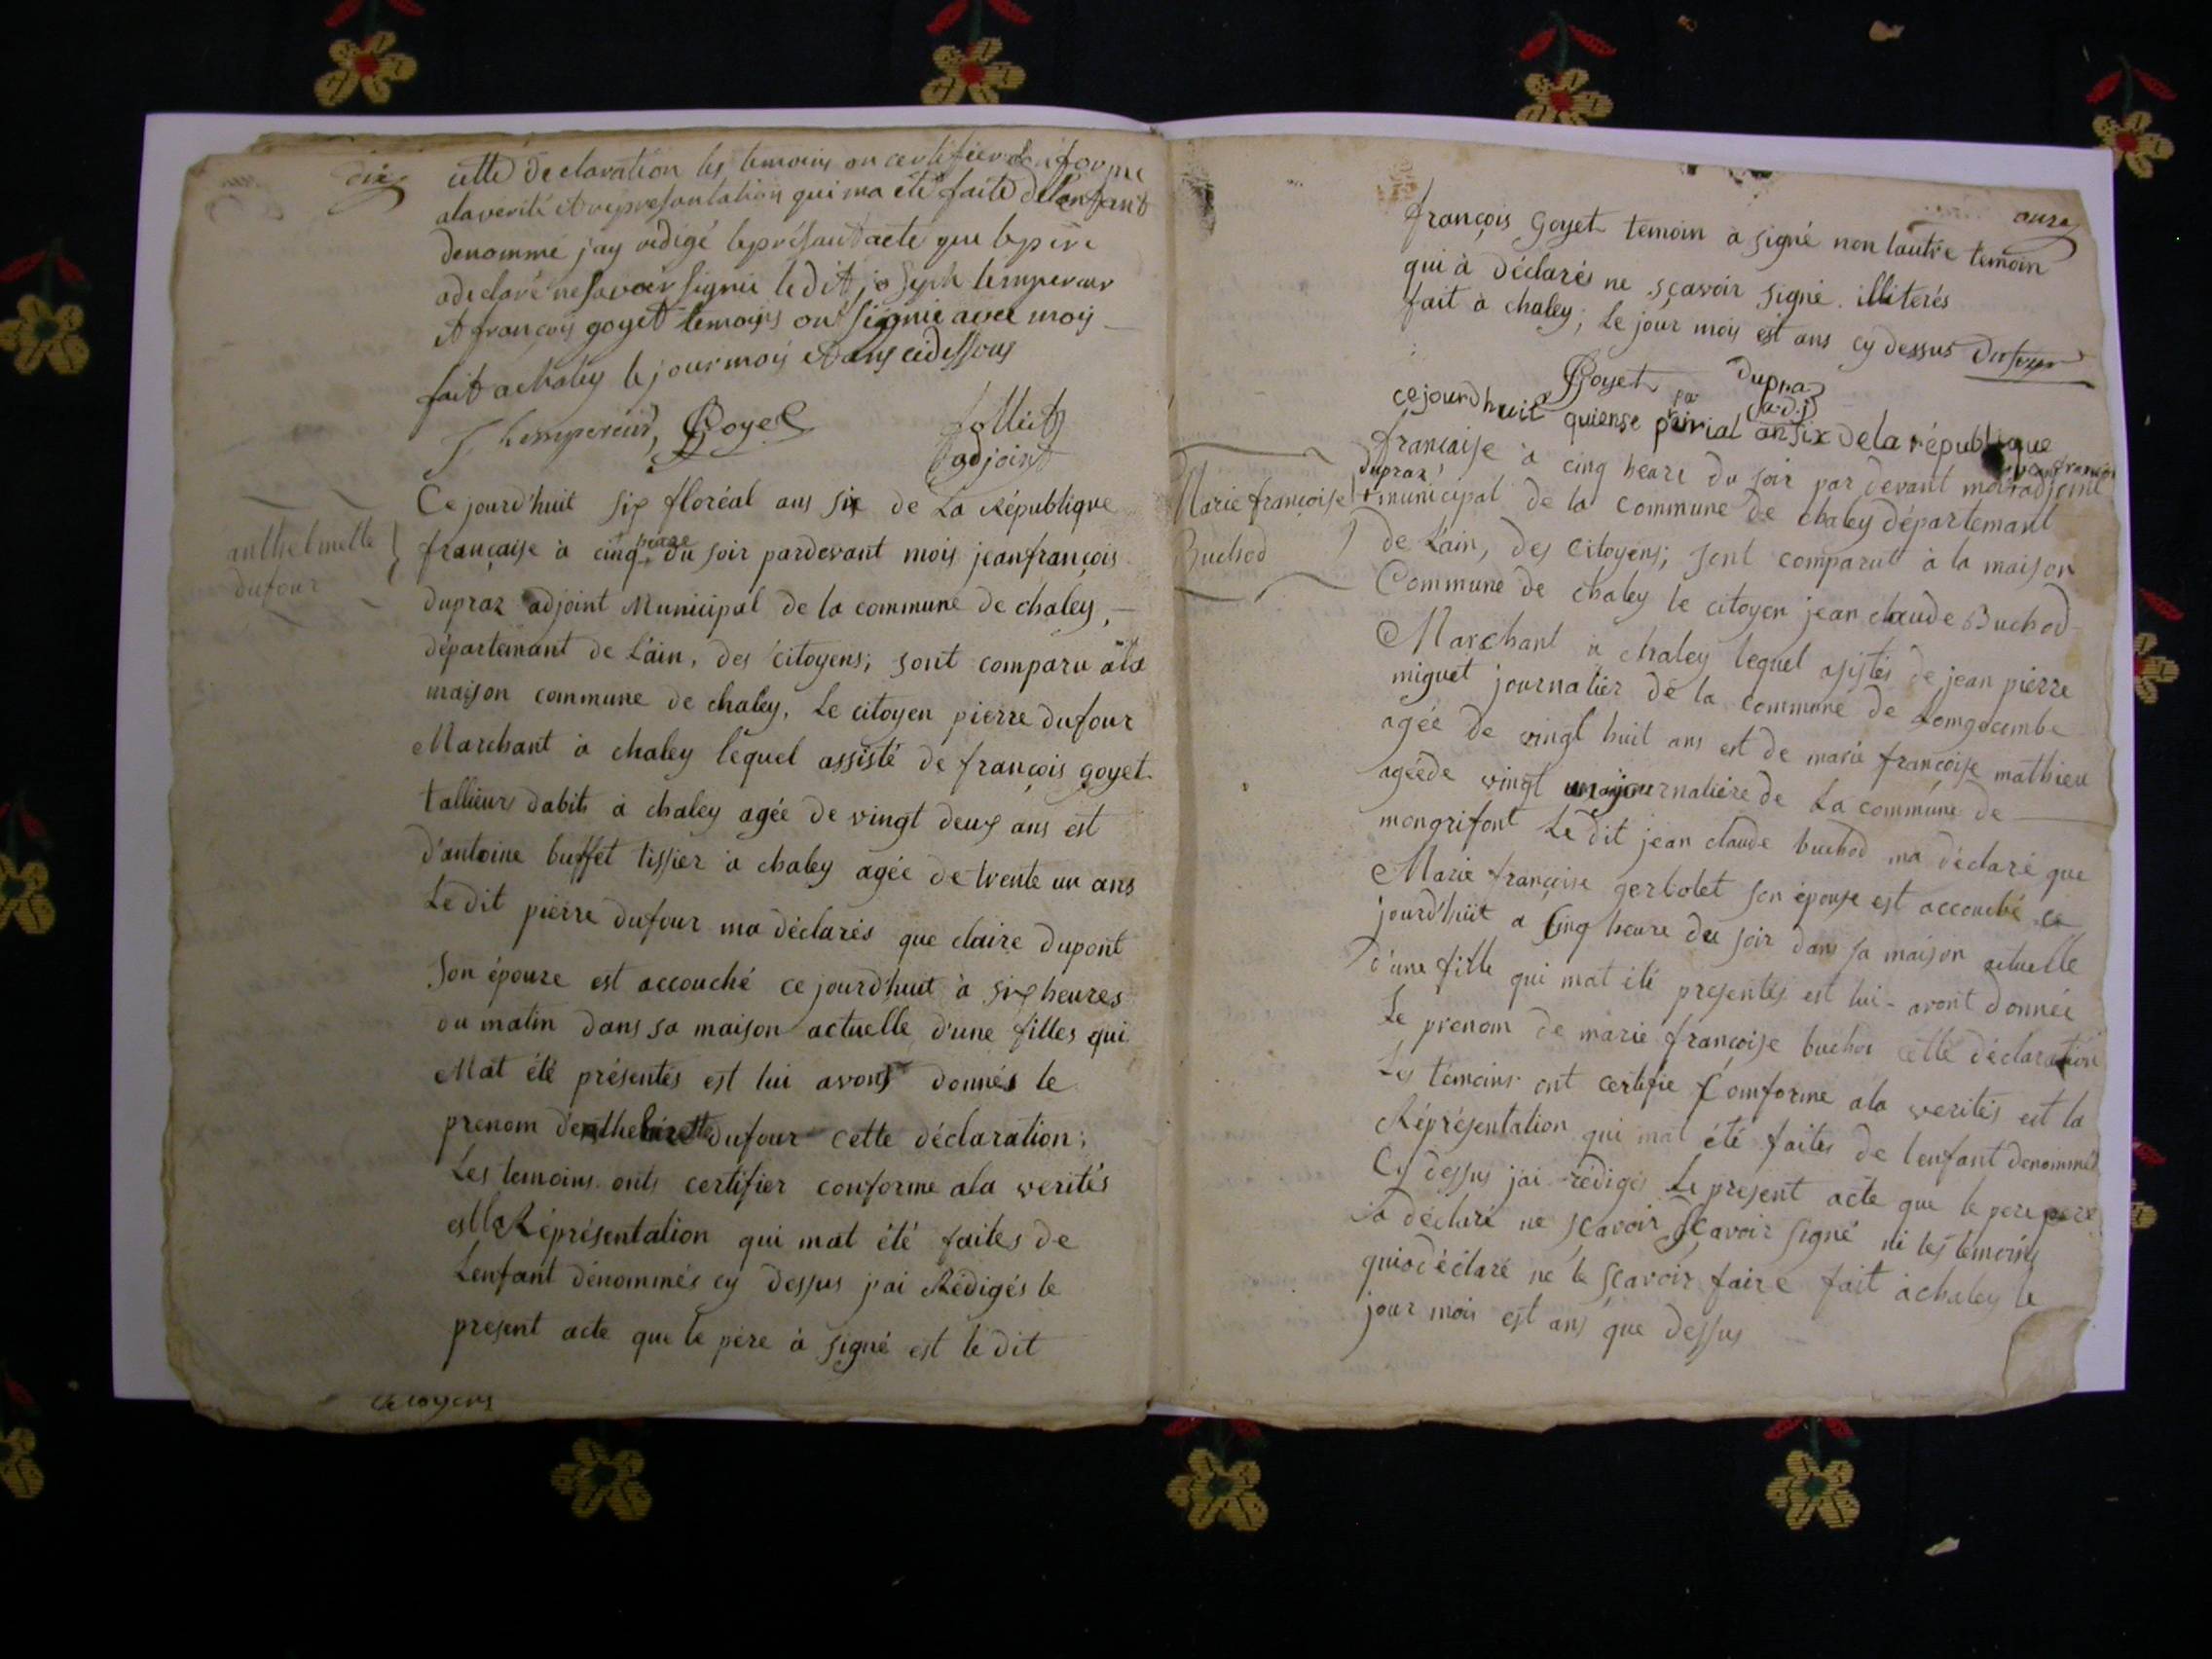 dix
cette declaration les temoins on certifier conforme
alaverité et represantation qui ma été faite delanfant
denommé jay redigé leprésant acte que lepere
adeclaré nesavoir signie ledit joseph lempereur
et françois goyet temoins ont signié avec mois
fait achaley lejour mois et ans cidessous
J. Lempereur, Goyet
adjoint
anthelmette
dufour
Ce jourd'huit six floréal ans six de La République
française à cinq heare du soir pardevant mois jeanfrançois
dupraz adjoint Municipal de la commune de chaley,
départemant de L'ain, des citoyens; sont comparu ala
maison commune de chaley, Le citoyen pierre dufour
Marchant à chaley léquel assisté de françois goyet
tallieur dabits à chaley agée de vingt deux ans est
d'antoine buffet tissier à chaley agée de trente un ans
Le dit pierre dufour ma déclarés que claire dupont
Son épouze est accouché ce jourd'huit à six heures
du matin dans sa maison actuelle d'une filles qui
Mat été présentés est lui avons donnés le
prenom dufour cette déclaration;
Les temoins onts certifier conforme ala verités
est la Réprésentation qui mat été faites de
Lenfant dénommés cy dessus j'ai Rédigés le
present acte que le père à signé est le dit
citoyens
onze
françois Goyet temoin à signé non lautre temoin
qui à déclarés ne sçavoir signé. illiterés
fait à chaley; Le jour mois est ans cy dessus Dufour
Goyet Dupraz
(adj)
cejourdhuit quiense prérial an six de la république
francaise à cinq heare du soir par devant moi jean françois
dupraz adjoint
municipal de la commune de chaley départemant
Marie françoise
Buchod
de L'ain, des citoyens; sont comparut à la maison
Commune de chaley le citoyen jean claude Buchod
Marchant à chaley lequel asistés de jean pierre
miguet journalier de la commune de Longecombe
agée de vingt huit ans est de marie francoise mathieu
agéede vingt journaliere de La commune de
mongrifont Le dit jean claude buchod ma déclaré que
Marie françoise gerbolet son épouse est accouché ce
jourd'huit a cinq heure du soir dans sa maison actuelle
d'une fille qui mat été presentés est lui avont donnée
Le prenom de marie francoise buchod cette déclaration
Les témoins ont certifie Comforme ala verités est la
Réprésentation qui mat été faites de lenfant denommés
Cy dessus jai rédigés Le present acte que le pere pere
a déclaré ne scavoir sçavoir signé ni les temoins
qui ont déclaré ne le sçavoir faire fait à chaley le
jour mois est ans que dessus